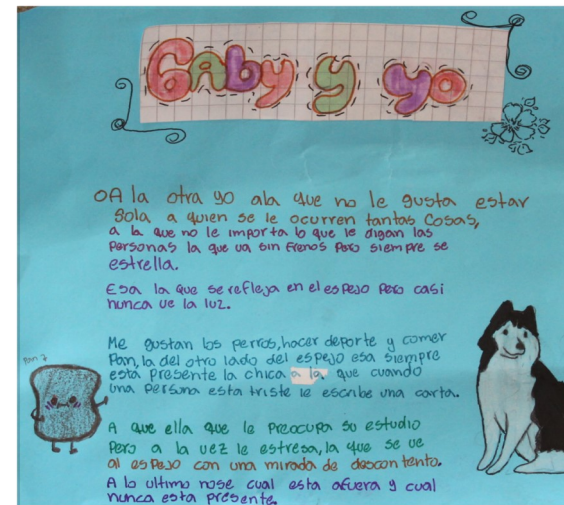 Gaby y yo
OA la otra yo ala que no le gusta estar
Sola a quien se le ocurren tantas cosas,
a la que no le importa lo que le digan las
Personas la que va sin frenos Pero siempre se
estrella.
Esa la que se refleja en el espejo Pero casi
nunca ve la luz.
Me gustan los perros, hacer deporte y comer
Pan, la del otro lado del espejo esa siempre
está presente la chica a la que cuando
una persona esta triste le escribe una carta.
A que ella que le Preocupa su estudio
Pero a la vez le estresa, la que se ve
al espejo con una mirada de descontento.
A lo ultimo nose cual esta afuera y cual
nunca esta presente.